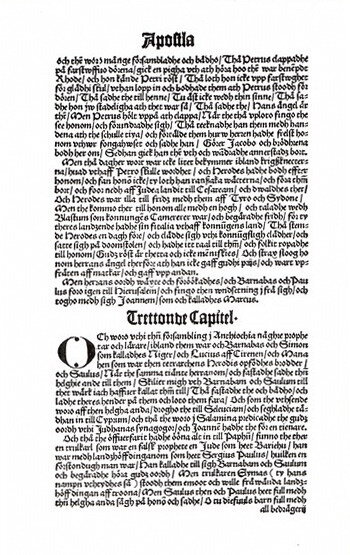 Apostla
och thē wors mānge försambladhe och bådho / Thå Petrus clappadhe
på farstwffwo dörena / gick en pigha vth ath höra hoo thē war benēpde
Rhode / och hon kānde Petri röst / Thå loch hon icke vpp farstwghet
för glädhi skul / vthan lopp in och bodhade them ath Petrus stoodh för
dören / Thå sadhe the till henne / Tu äst icke wedh thin sinne / Thå sa-
dhe hon jw stadeligha ath thet war så / Thå sadhe the / Hans āngel är
thz / Men Petrus hölt vppå ath clappa / När the thå vploto fingo the
see honom / och förundradhe sigh / Thå teeknadhe han them medh han-
dena ath the skulle tiya / och förtälde them hurw herren hadhe fördt ho-
nom vthwr fongahwset och sadhe han / Görer Jacobo och brödhrena
bodh her om / Sedhan gick han thē vth och wādradhe annerstadz boor.
Men thå dagher woor war icke liten bekymmer ibland krigsknecter-
na / hwad vthaff Petro skulle wordhet / och Herodes hadhe bodh effter
honom / och fan honō icke / ty loch han ranssaka wāctarena / och foor thē
boor / och foor nedh aff Judea landet till Cesaream / och dwaldhes ther /
Och Herodes war illa till fridz medh them aff Tyro och Sydone /
Men the komme ther till honom alle medh en hogh / och taladhe wedh
Blastum som konungēs Camererer war / och begäradhe fridh / för ty
theres landzende hadhe sin fitalia vthaff konnūgens land / Thå stem-
de Herodes en dagh för / och clädde sigh vthi konnūgsligh clädher / och
satte sigh på doomstolen / och hadhe itt taal till thē / och folkit ropadhe
till honom / Gudz röst är thetta och icke mēniskies / Och stray sloog ho
nom herrans āngel ther för / ath han icke gaff gudhi prijs / och wart vp-
fräten aff matkar / och gaff vpp andan.
Men herrans oordh wexte och förökadhes / och Barnabas och Pau
lus foro igen till Jherusalem / och fingo then vnsetning ifrå sigh / och
toghe medh sigh Joannem / som och kalladhes Marcus.
Trettonde Capitel.
OCh woro vthi thē försambling i Anthiochia någhre prophe
tar och lärare / ibland them war och Barnabas och Simon
som kalladhes Niger / och Lucius aff Cirenen / och Mana
hen som war then tetrarchens Herodis opfödhes brodder /
och Saulus / När the samma tiänte herranom / och fastadhe sadhe thē
helghie ande till them / Skilier migh vth Barnabam och Saulum till
thet wärk iach haffuer kallat thē till / Thå fastadhe the och bådho / och
ladhe theres hender på them och loto them fara / Och som the vthsende
woro aff then helgha anda / droghe the till Seleuciam / och seghladhe tå-
dhan in till Cypum / och thå the woro i Salamina predicadhe the gudz
oordh vthi Judhanas synagogor / och Joannē hadhe the för en tienare.
Och thå the öffuerfarit hadhe öōna alt in till Paphū / funno the ther
en trulkarl som war en falsk prophete en Jude som heet Bariehu / han
war medh landzhöffdinganom som heet Sergius Paulus / hwilken en
förstondugh man war / Han kalladhe till sigh Barnabam och Saulum
och begäradhe höra gudz oordh / Men trulkaren Elymas (ty hans
nampn vtheydhes så) stoodh them emoot och wille frå wānda landz-
höffdingan aff troona / Men Saulus then och Paulus heet full medh
thē helgha anda såg på honō och sadhe / O tu diefuuls barn full medh
all bedrägerij